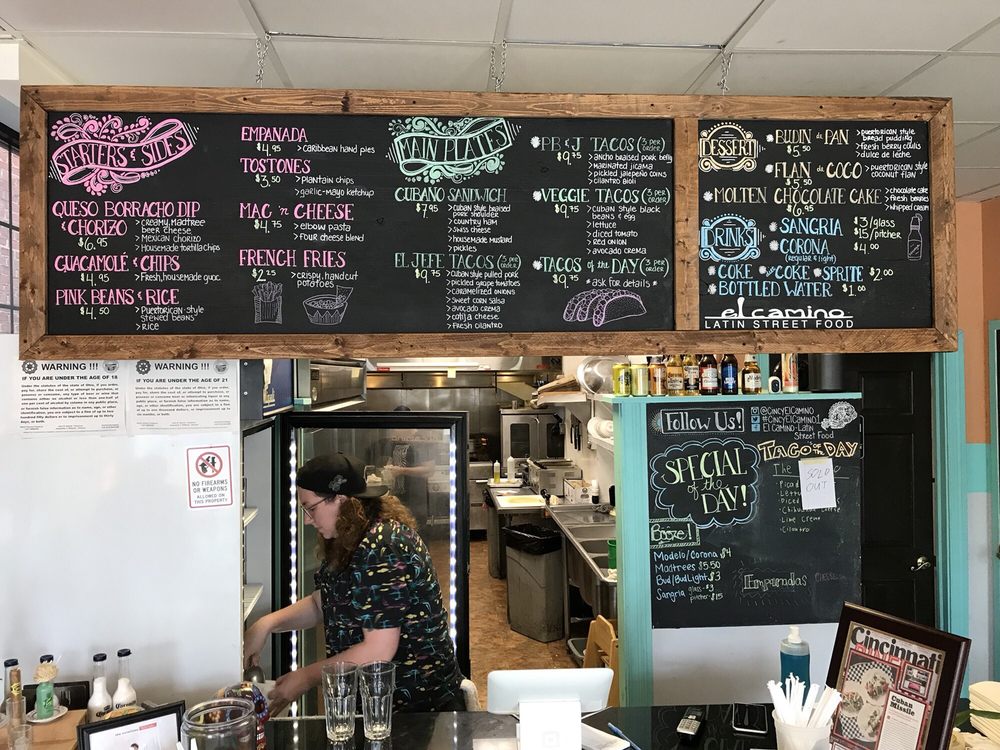 STARTERS & SIDES
QUESO BORRACHO DIP
& CHORIZO
$6.95
> creamy, Madtree
beer cheese
> Mexican chorizo
> Housemade tortilla chips
GUACAMOLÉ & CHIPS
$4.95
> Fresh, housemade guac.
PINK BEANS & RICE
$4.50
> Puertorican-style
stewed beans
> rice
EMPANADA
$4.95
> Caribbean hand pies
TOSTONES
$3.50
> plantain chips
> garlic-mayo ketchup
MAC 'n CHEESE
$4.75
> elbow pasta
> four cheese blend
FRENCH FRIES
$2.25
> crispy, handcut
potatoes
MAIN PLATES
CUBANO SANDWICH
$7.95
> Cuban style braised
pork shoulder
> country ham
> swiss cheese
> housemade mustard
> pickles
EL JEFE TACOS (3 per order)
$9.75
> Cuban style pulled pork
> pickled grape tomatoes
> caramelized onions
> sweet corn salsa
> avocado crema
> cotija cheese
> fresh cilantro
*PB & J TACOS (3 per order)
$9.75
> ancho braised pork belly
> marinated jicama
> pickled jalapeño coins
> cilantro aioli
*VEGGIE TACOS (3 per order)
$9.75
> Cuban style black
beans & egg
> lettuce
> diced tomato
> red onion
> avocado crema
*TACOS of the DAY (3 per order)
$9.75
* ask for details *
DESSERT
*BUDIN de PAN
$5.50
> puertorican style
bread pudding
> fresh berry coulis
> dulce de leche
*FLAN de COCO
$5.50
> puertorican style
coconut flan
*MOLTEN CHOCOLATE CAKE
$6.95
> chocolate cake
> fresh berries
> whipped cream
DRINKS
*SANGRIA
$3/glass
$15/pitcher
*CORONA
(regular & light)
$4.00
*COKE *DIET COKE *SPRITE $2.00
*BOTTLED WATER $1.00
el camino
LATIN STREET FOOD
WARNING !!!
IF YOU ARE UNDER THE AGE OF 18
WARNING !!!
IF YOU ARE UNDER THE AGE OF 21
NO FIREARMS
OR WEAPONS
ALLOWED ON
THIS PROPERTY
Follow Us!
@CincyElCamino
#CincyElCamino1
El Camino-Latin
Street Food
SPECIAL
of the
DAY!
TACO OF THE DAY
The
SOLD
OUT
Lime Crema
Cilantro
Booze!
Modelo/Corona $4
Madtrees $5.50
Bud/Bud Light $3
Sangria glass-$3
pitcher-$15
Empanadas
Cincinnati
Cuban
Missile